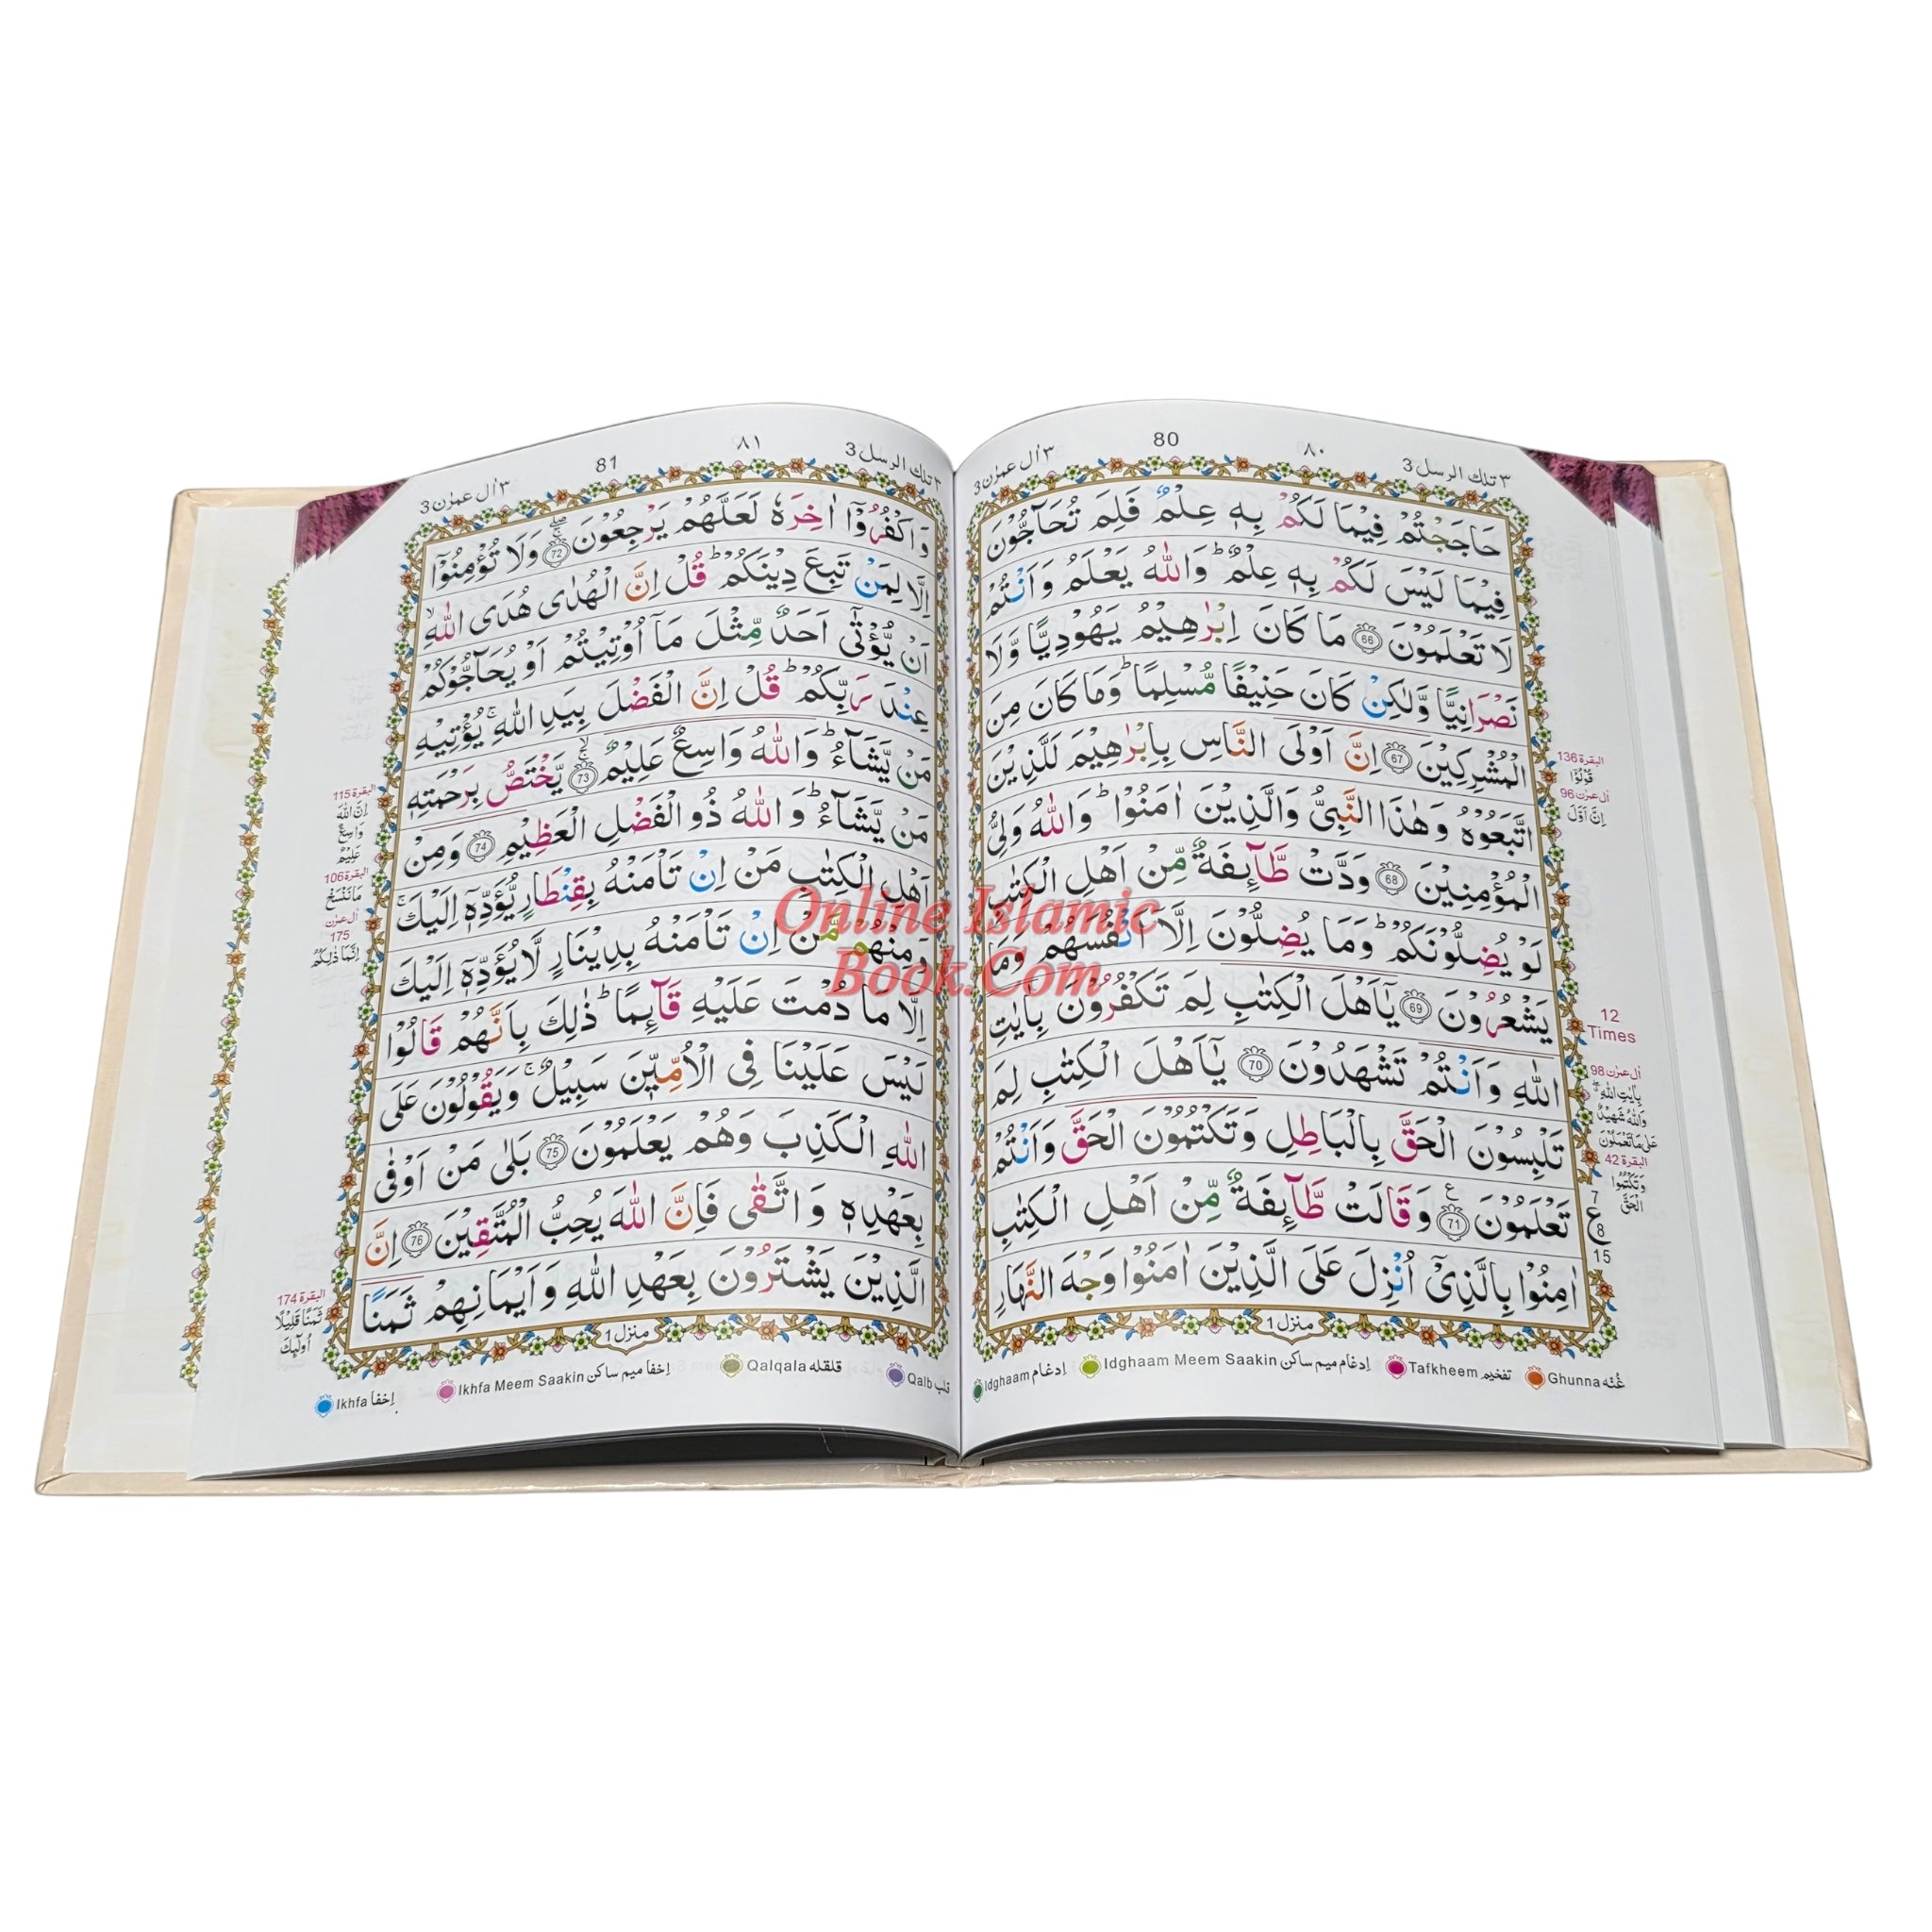 ٣ تلك الرسل 3
٨٠
80
٣ اٰل عمرٰن 3
حَاجَجْتُمْ فِيْمَا لَكُمْ بِهٖ عِلْمٌ فَلِمَ تُحَآجُّوْنَ
فِيْمَا لَيْسَ لَكُمْ بِهٖ عِلْمٌ ؕ وَاللّٰهُ يَعْلَمُ وَاَنْتُمْ
لَا تَعْلَمُوْنَ 66 مَا كَانَ اِبْرٰهِيْمُ يَهُوْدِيًّا وَّلَا
نَصْرَانِيًّا وَّلٰكِنْ كَانَ حَنِيْفًا مُّسْلِمًا ؕ وَمَا كَانَ مِنَ
الْمُشْرِكِيْنَ 67 اِنَّ اَوْلَى النَّاسِ بِاِبْرٰهِيْمَ لَلَّذِيْنَ
اتَّبَعُوْهُ وَهٰذَا النَّبِىُّ وَالَّذِيْنَ اٰمَنُوْا ؕ وَاللّٰهُ وَلِىُّ
الْمُؤْمِنِيْنَ 68 وَدَّتْ طَّآئِفَةٌ مِّنْ اَهْلِ الْكِتٰبِ
لَوْ يُضِلُّوْنَكُمْ ؕ وَمَا يُضِلُّوْنَ اِلَّاۤ اَنْفُسَهُمْ وَمَا
يَشْعُرُوْنَ 69 يٰۤاَهْلَ الْكِتٰبِ لِمَ تَكْفُرُوْنَ بِاٰيٰتِ
اللّٰهِ وَاَنْتُمْ تَشْهَدُوْنَ 70 يٰۤاَهْلَ الْكِتٰبِ لِمَ
تَلْبِسُوْنَ الْحَقَّ بِالْبَاطِلِ وَتَكْتُمُوْنَ الْحَقَّ وَاَنْتُمْ
تَعْلَمُوْنَ 71 ع وَقَالَتْ طَّآئِفَةٌ مِّنْ اَهْلِ الْكِتٰبِ
اٰمِنُوْا بِالَّذِىْۤ اُنْزِلَ عَلَى الَّذِيْنَ اٰمَنُوْا وَجْهَ النَّهَارِ
منزل 1
البقرة 136
قُوْلُوْۤا
اٰل عمرٰن 96
اِنَّ اَوَّلَ
12
Times
اٰل عمرٰن 98
بِاٰيٰتِ اللّٰهِ
وَاللّٰهُ شَهِيْدٌ
عَلٰى مَا تَعْمَلُوْنَ
البقرة 42
وَتَكْتُمُوا
الْحَقَّ
7
ع
8
15
Ghunna غُنّه
Tafkheem تفخيم
Idghaam Meem Saakin اِدغام ميم ساكن
Idghaam اِدغام
٣ تلك الرسل 3
٨١
81
٣ اٰل عمرٰن 3
وَاكْفُرُوْۤا اٰخِرَهٗ لَعَلَّهُمْ يَرْجِعُوْنَ 72 وَلَا تُؤْمِنُوْۤا
اِلَّا لِمَنْ تَبِعَ دِيْنَكُمْ ؕ قُلْ اِنَّ الْهُدٰى هُدَى اللّٰهِ ۙ
اَنْ يُّؤْتٰٓى اَحَدٌ مِّثْلَ مَاۤ اُوْتِيْتُمْ اَوْ يُحَآجُّوْكُمْ
عِنْدَ رَبِّكُمْ ؕ قُلْ اِنَّ الْفَضْلَ بِيَدِ اللّٰهِ ۚ يُؤْتِيْهِ
مَنْ يَّشَآءُ ؕ وَاللّٰهُ وَاسِعٌ عَلِيْمٌ 73 يَّخْتَصُّ بِرَحْمَتِهٖ
مَنْ يَّشَآءُ ؕ وَاللّٰهُ ذُو الْفَضْلِ الْعَظِيْمِ 74 وَمِنْ
اَهْلِ الْكِتٰبِ مَنْ اِنْ تَاْمَنْهُ بِقِنْطَارٍ يُّؤَدِّهٖۤ اِلَيْكَ ۚ
وَمِنْهُمْ مَّنْ اِنْ تَاْمَنْهُ بِدِيْنَارٍ لَّا يُؤَدِّهٖۤ اِلَيْكَ
اِلَّا مَا دُمْتَ عَلَيْهِ قَآئِمًا ؕ ذٰلِكَ بِاَنَّهُمْ قَالُوْا
لَيْسَ عَلَيْنَا فِى الْاُمِّيّٖنَ سَبِيْلٌ ۚ وَيَقُوْلُوْنَ عَلَى
اللّٰهِ الْكَذِبَ وَهُمْ يَعْلَمُوْنَ 75 بَلٰى مَنْ اَوْفٰى
بِعَهْدِهٖ وَاتَّقٰى فَاِنَّ اللّٰهَ يُحِبُّ الْمُتَّقِيْنَ 76 اِنَّ
الَّذِيْنَ يَشْتَرُوْنَ بِعَهْدِ اللّٰهِ وَاَيْمَانِهِمْ ثَمَنًا
منزل 1
البقرة 115
اِنَّ اللّٰهَ
وَاسِعٌ
عَلِيْمٌ
البقرة 106
مَا نَنْسَخْ
اٰل عمرٰن
175
اِنَّمَا ذٰلِكُمُ
البقرة 174
ثَمَنًا قَلِيْلًا
اُولٰٓئِكَ
Qalb قلب
Qalqala قلقله
Ikhfa Meem Saakin اِخفا ميم ساكن
Ikhfa اِخفا
Online Islamic
Book.Com